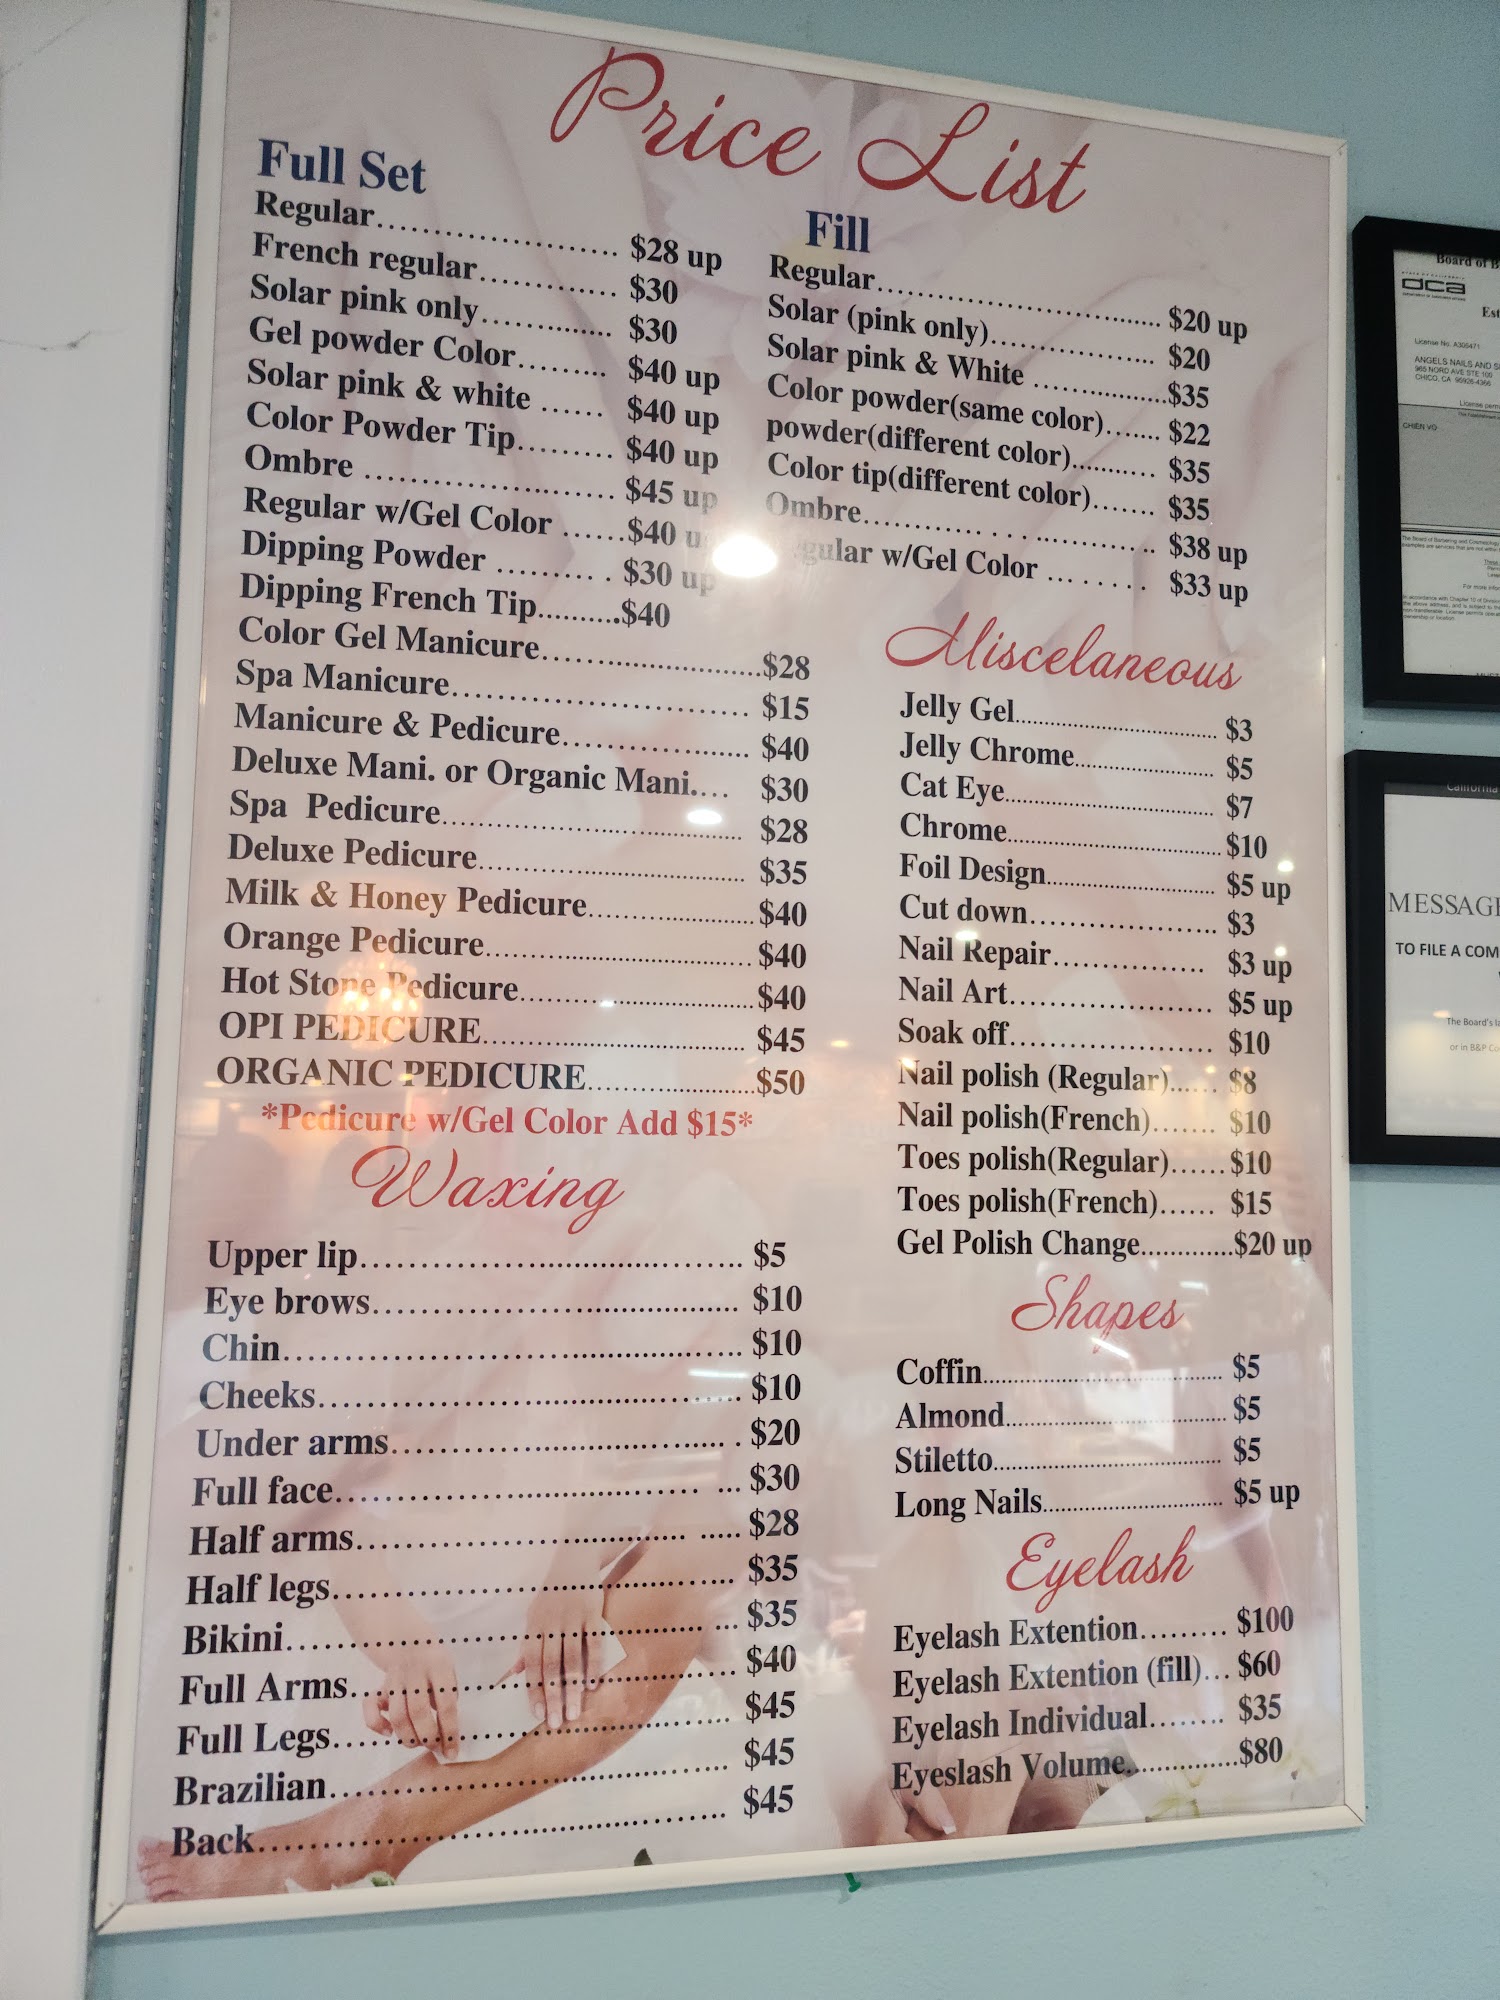 Price List
Full Set
Regular........................ $28 up
French regular.............. $30
Solar pink only.............. $30
Gel powder Color......... $40 up
Solar pink & white ...... $40 up
Color Powder Tip.......... $40 up
Ombre ......................... $45 up
Regular w/Gel Color ......$40 u
Dipping Powder .......... $30 up
Dipping French Tip..........$40
Color Gel Manicure..........................$28
Spa Manicure................................ $15
Manicure & Pedicure.................... $40
Deluxe Mani. or Organic Mani.... $30
Spa Pedicure................................. $28
Deluxe Pedicure............................. $35
Milk & Honey Pedicure..................$40
Orange Pedicure.............................$40
Hot Stone Pedicure.........................$40
OPI PEDICURE............................. $45
ORGANIC PEDICURE..................$50
*Pedicure w/Gel Color Add $15*
Waxing
Upper lip........................................ $5
Eye brows....................................... $10
Chin................................................ $10
Cheeks............................................ $10
Under arms.................................... . $20
Full face..................................... ... $30
Half arms................................. ..... $28
Half legs.......................................... $35
Bikini.......................................... ... $35
Full Arms....................................... $40
Full Legs......................................... $45
Brazilian......................................... $45
Back................................................ $45
Fill
Regular................................ $20 up
Solar (pink only).................. $20
Solar pink & White ...............$35
Color powder(same color)....... $22
powder(different color)........... $35
Color tip(different color)....... $35
Ombre................................ $38 up
gular w/Gel Color ... ...... $33 up
Miscelaneous
Jelly Gel.................................. $3
Jelly Chrome........................... $5
Cat Eye................................... $7
Chrome....................................$10
Foil Design.............................. $5 up
Cut down..................... $3
Nail Repair................ $3 up
Nail Art...................... $5 up
Soak off...................... $10
Nail polish (Regular)...... $8
Nail polish(French)....... $10
Toes polish(Regular)......$10
Toes polish(French)...... $15
Gel Polish Change.............$20 up
Shapes
Coffin..................................... $5
Almond.................................. $5
Stiletto.................................... $5
Long Nails.............................. $5 up
Eyelash
Eyelash Extention......... $100
Eyelash Extention (fill)... $60
Eyelash Individual........ $35
Eyeslash Volume...............$80
Board of B
dca
Est
License No. A305471
ANGELS NAILS AND S
965 NORD AVE STE 100
CHICO, CA 95926-4366
CHIEN VO
California
MESSAGE
TO FILE A COM
The Board's la
or in B&P Co